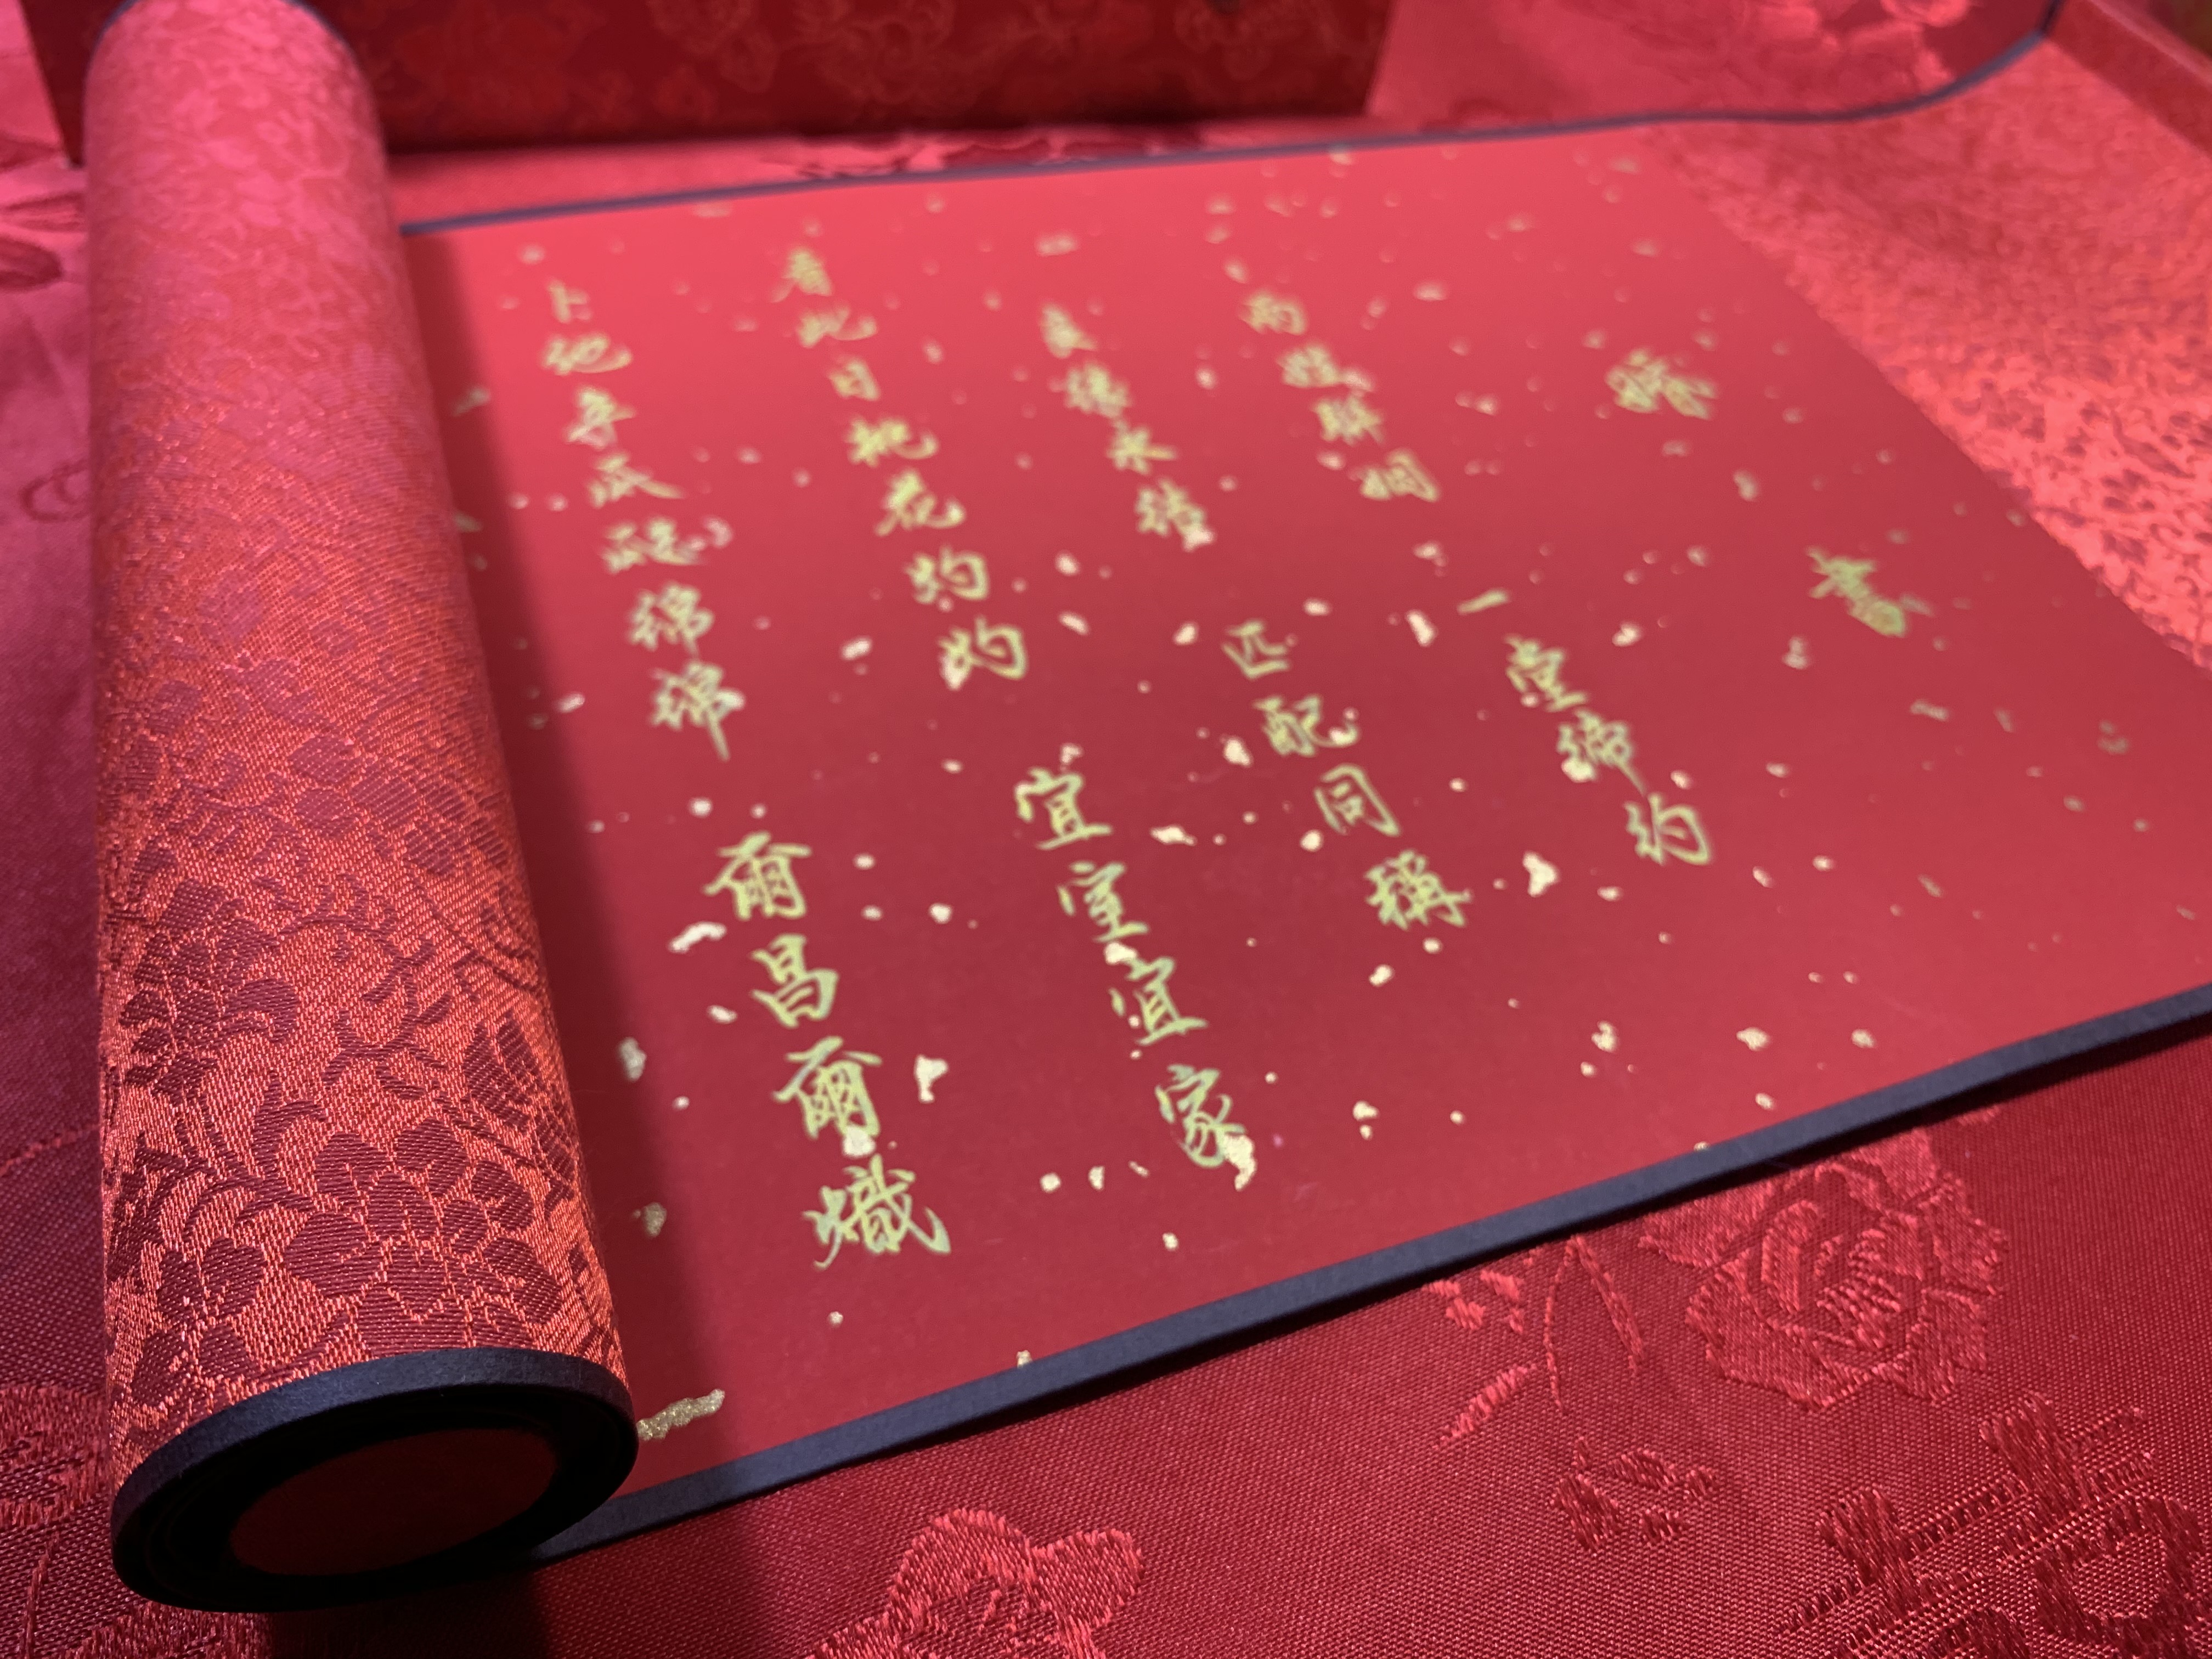 婚書
兩姓聯姻 一堂締約
良緣永結 匹配同稱
看此日桃花灼灼 宜室宜家
卜他年瓜瓞綿綿 爾昌爾熾